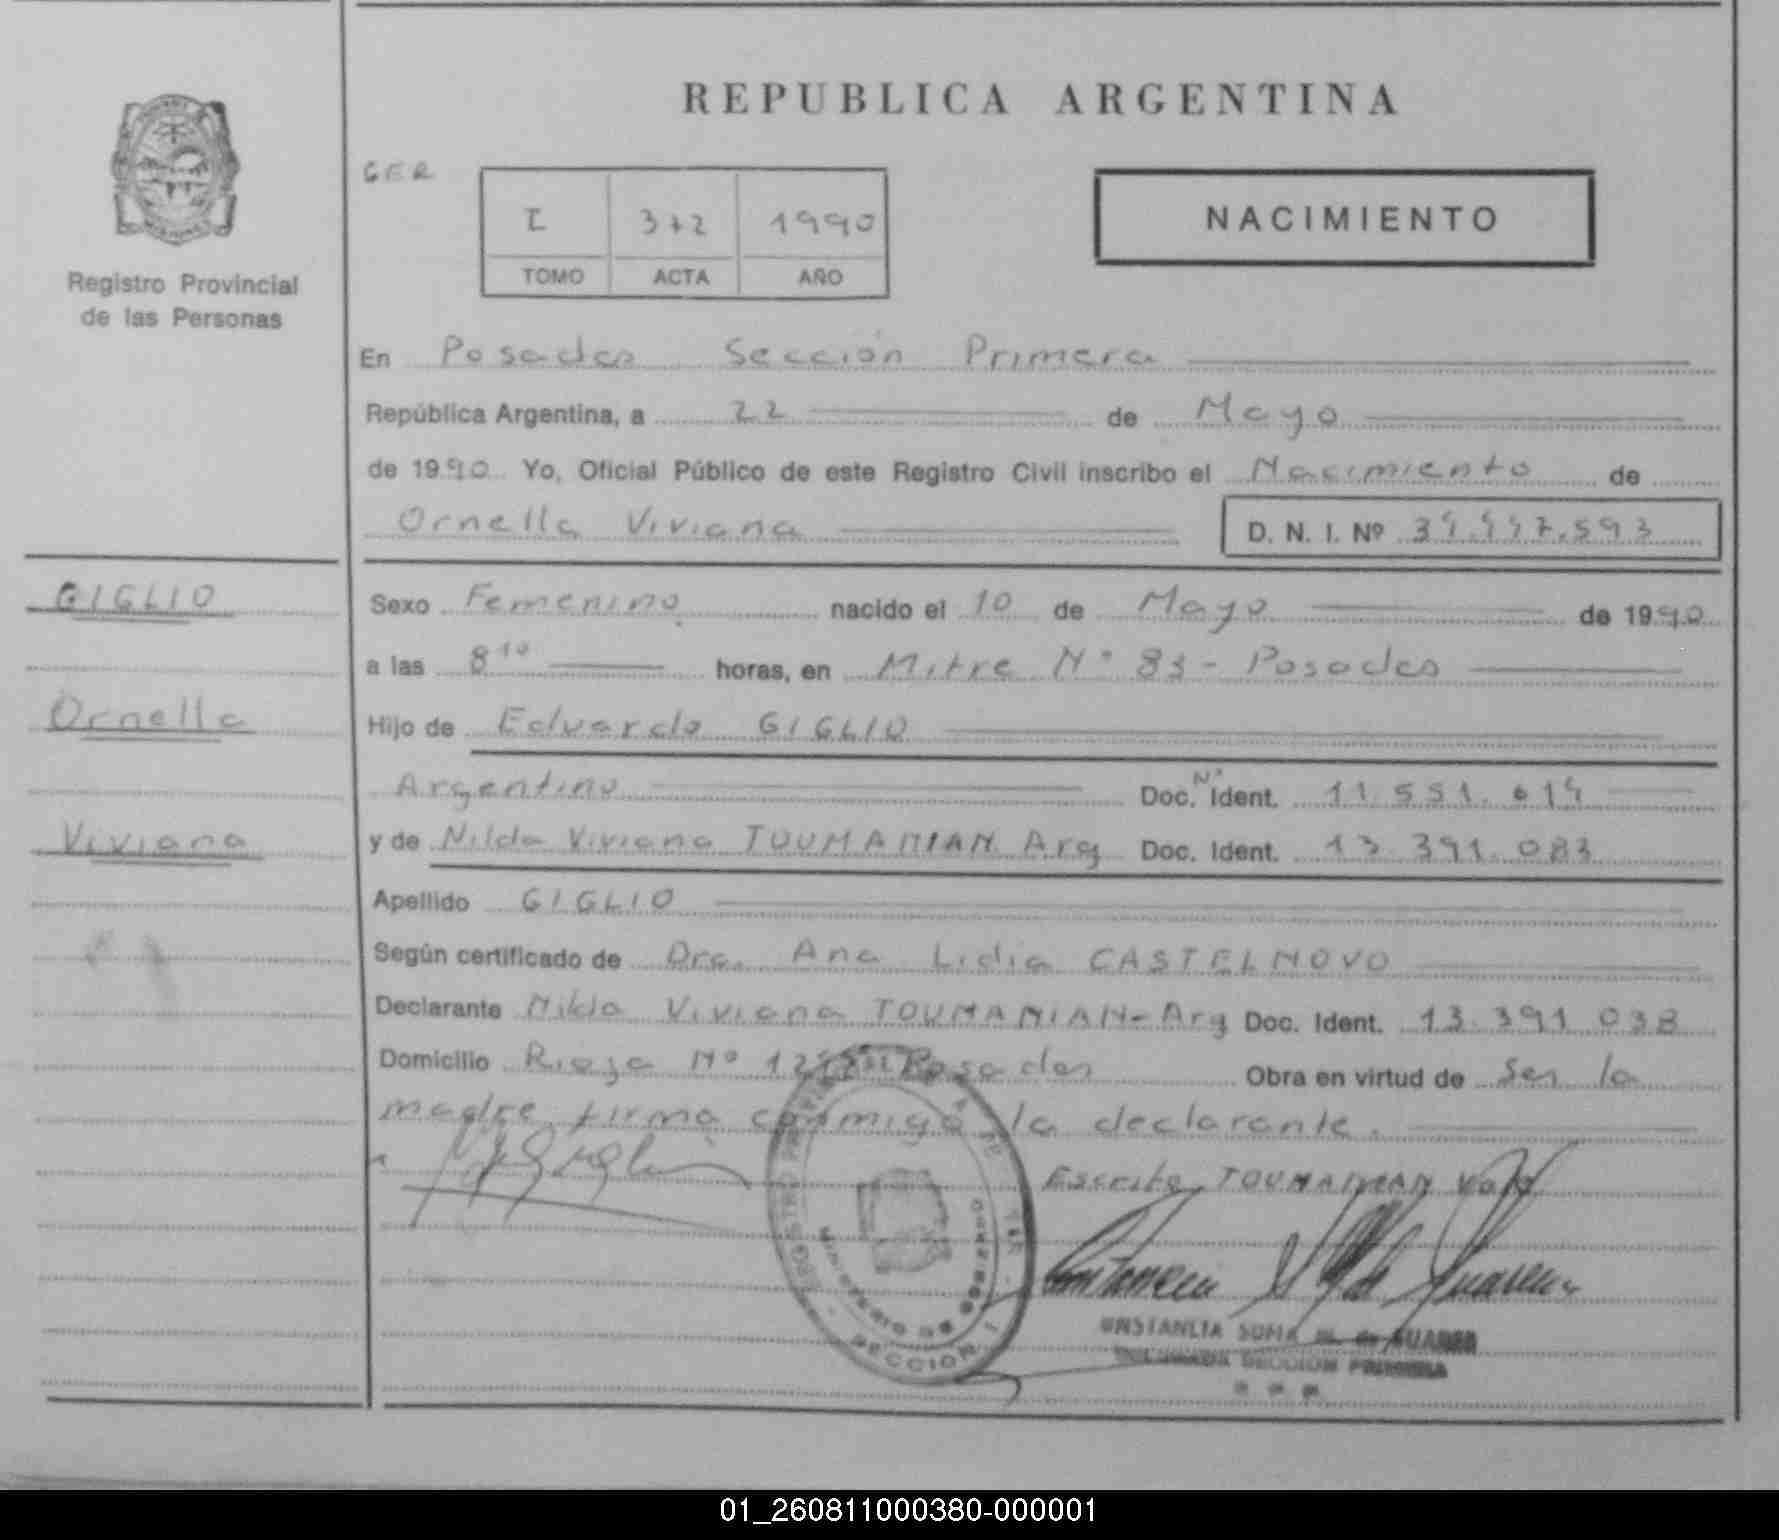 REPUBLICA ARGENTINA
Registro Provincial
de las Personas
GER
I 372 1990
TOMO ACTA AÑO
NACIMIENTO
En Posadas Sección Primera
República Argentina, a 22 de Mayo
de 1990 Yo, Oficial Público de este Registro Civil inscribo el Nacimiento de
Ornella Viviana D. N. I. Nº
GIGLIO
Ornella
Viviana
Sexo Femenino nacido el 10 de Mayo de 1990
a las 8¹⁰ horas, en Mitre Nº 83 - Posadas
Hijo de Eduardo GIGLIO
Argentino Doc. Nº Ident. 11.551.014
y de Nilda Viviana TOUMANIAN Arg Doc. Ident. 13.391.083
Apellido GIGLIO
Según certificado de Dra. Ana Lidia CASTELNOVO
Declarante Nilda Viviana TOUMANIAN - Arg Doc. Ident. 13.391.038
Domicilio Rioja Nº Posadas Obra en virtud de Ser la
madre firma conmigo la declarante.
Escrito TOUMANIAN Vale
REGISTRO
MINISTERIO DE GOBIERNO
SECCION 1
SOFIA de SUAREZ
SECCION PRIMERA
01_260811000380-000001